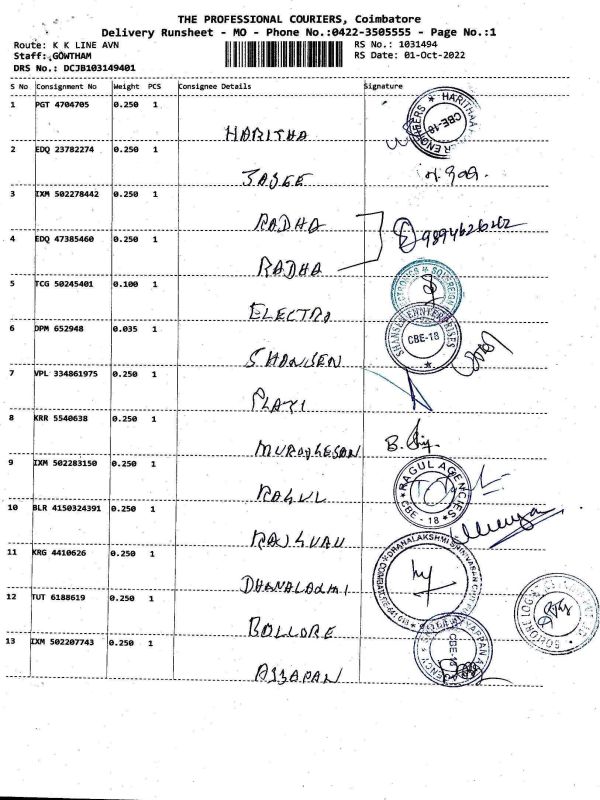 THE PROFESSIONAL COURIERS, Coimbatore
Delivery Runsheet - MO - Phone No.:0422-3505555 - Page No.:1
Route: K K LINE AVN RS No.: 1031494
Staff: GOWTHAM RS Date: 01-Oct-2022
DRS No.: DCJB103149401
S No Consignment No Weight PCS Consignee Details Signature
1 PGT 4704705 0.250 1
HARITHA
2 EDQ 23782274 0.250 1
3 IXM 502278442 0.250 1
RADHA
9894626262
4 EDQ 47385460 0.250 1
RADHA
5 TCG 50245401 0.100 1
ELECTRO
6 DPM 652948 0.035 1
SHANSEN
CBE-18
7 VPL 334861975 0.250 1
8 KRR 5540638 0.250 1
MURUGESAN
9 IXM 502283150 0.250 1
RAGUL
RAGUL AGENCIES
CBE - 18
10 BLR 4150324391 0.250 1
11 KRG 4410626 0.250 1
DHANALAXMI
12 TUT 6188619 0.250 1
BOLLORE
13 IXM 502207743 0.250 1
CBE-18